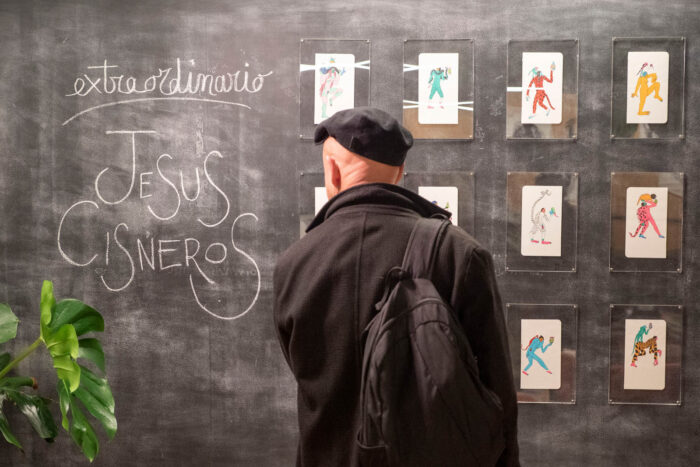 extraordinario
JESUS
CISNEROS